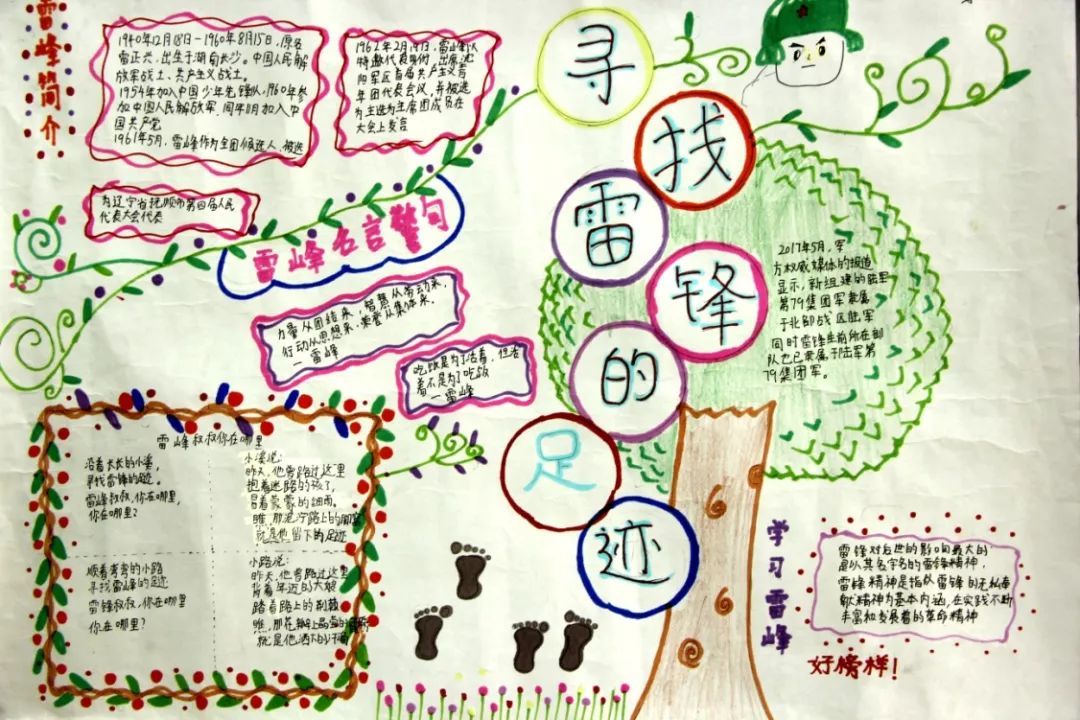 雷峰简介
1940年12月18日-1960年8月15日，原名
雷正兴，出生于湖南长沙。中国人民解
放军战士、共产主义战士。
1954年加入中国少年先锋队，1960年参
加中国人民解放军，同年11月加入中
国共产党
1961年5月，雷峰作为全团候选人，被选
为辽宁省抚顺市第四届人民
代表大会代表
1962年2月19日，雷峰以
特邀代表身份，出席沈
阳军区首届共产主义青
年团代表会议，并被选
为主选为主席团成员在
大会上发言
寻找雷锋的足迹
雷峰名言警句
力量从团结来，智慧从劳动来，
行动从思想来，荣誉从集体来。
—雷峰
吃饭是为了活着，但活
着不是为了吃饭
—雷峰
2017年5月，军
方权威媒体的报道
显示，新组建的陆军
第79集团军隶属
于北部战区陆军
同时雷锋生前所在部
队也已隶属于陆军第
79集团军。
雷峰叔叔你在哪里
沿着长长的小溪，
寻找雷锋的足迹。
雷峰叔叔，你在哪里，
你在哪里？
小溪说：
昨天，他曾路过这里
抱着迷路的孩子，
冒着蒙蒙的细雨。
瞧，那泥泞路上的脚窝
就是他留下的足迹
顺着弯弯的小路
寻找雷峰的足迹
雷锋叔叔，你在哪里
你在哪里？
小路说：
昨天，他曾路过这里
背着年迈的大娘
踏着路上的荆棘
瞧，那花瓣上晶莹的露珠
就是他洒下的汗滴
学习雷峰
雷锋对后世的影响最大的
是以其名字名的雷锋精神，
雷峰精神是指以雷锋的无私奉
献精神为基本内涵，在实践不断
丰富和发展着的革命精神
好榜样！